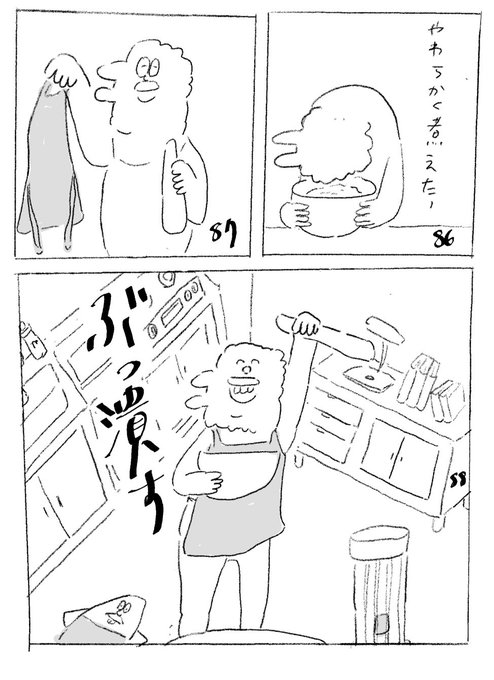 やわらかく煮えたー
86
87
ぶっ潰す
88